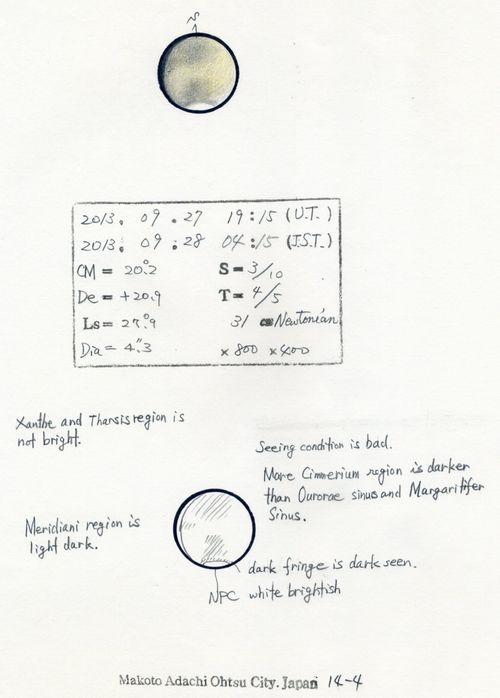 S
2013. 09 . 27 19:15 (U.T.)
2013. 09 . 28 04:15 (J.S.T.)
CM = 20°.2 S = 3/10
De = +20.9 T = 4/5
Ls = 27°.9 31 cm Newtonian
Dia = 4".3 ×800 ×400
Xanthe and Tharsis region is
not bright.
Seeing condition is bad.
Mare Cimmerium region is darker
than Ourorae sinus and Margaritifer
Sinus.
Meridiani region is
light dark.
dark fringe is dark seen.
NPC white brightish
Makoto Adachi Ohtsu City. Japan 14-4